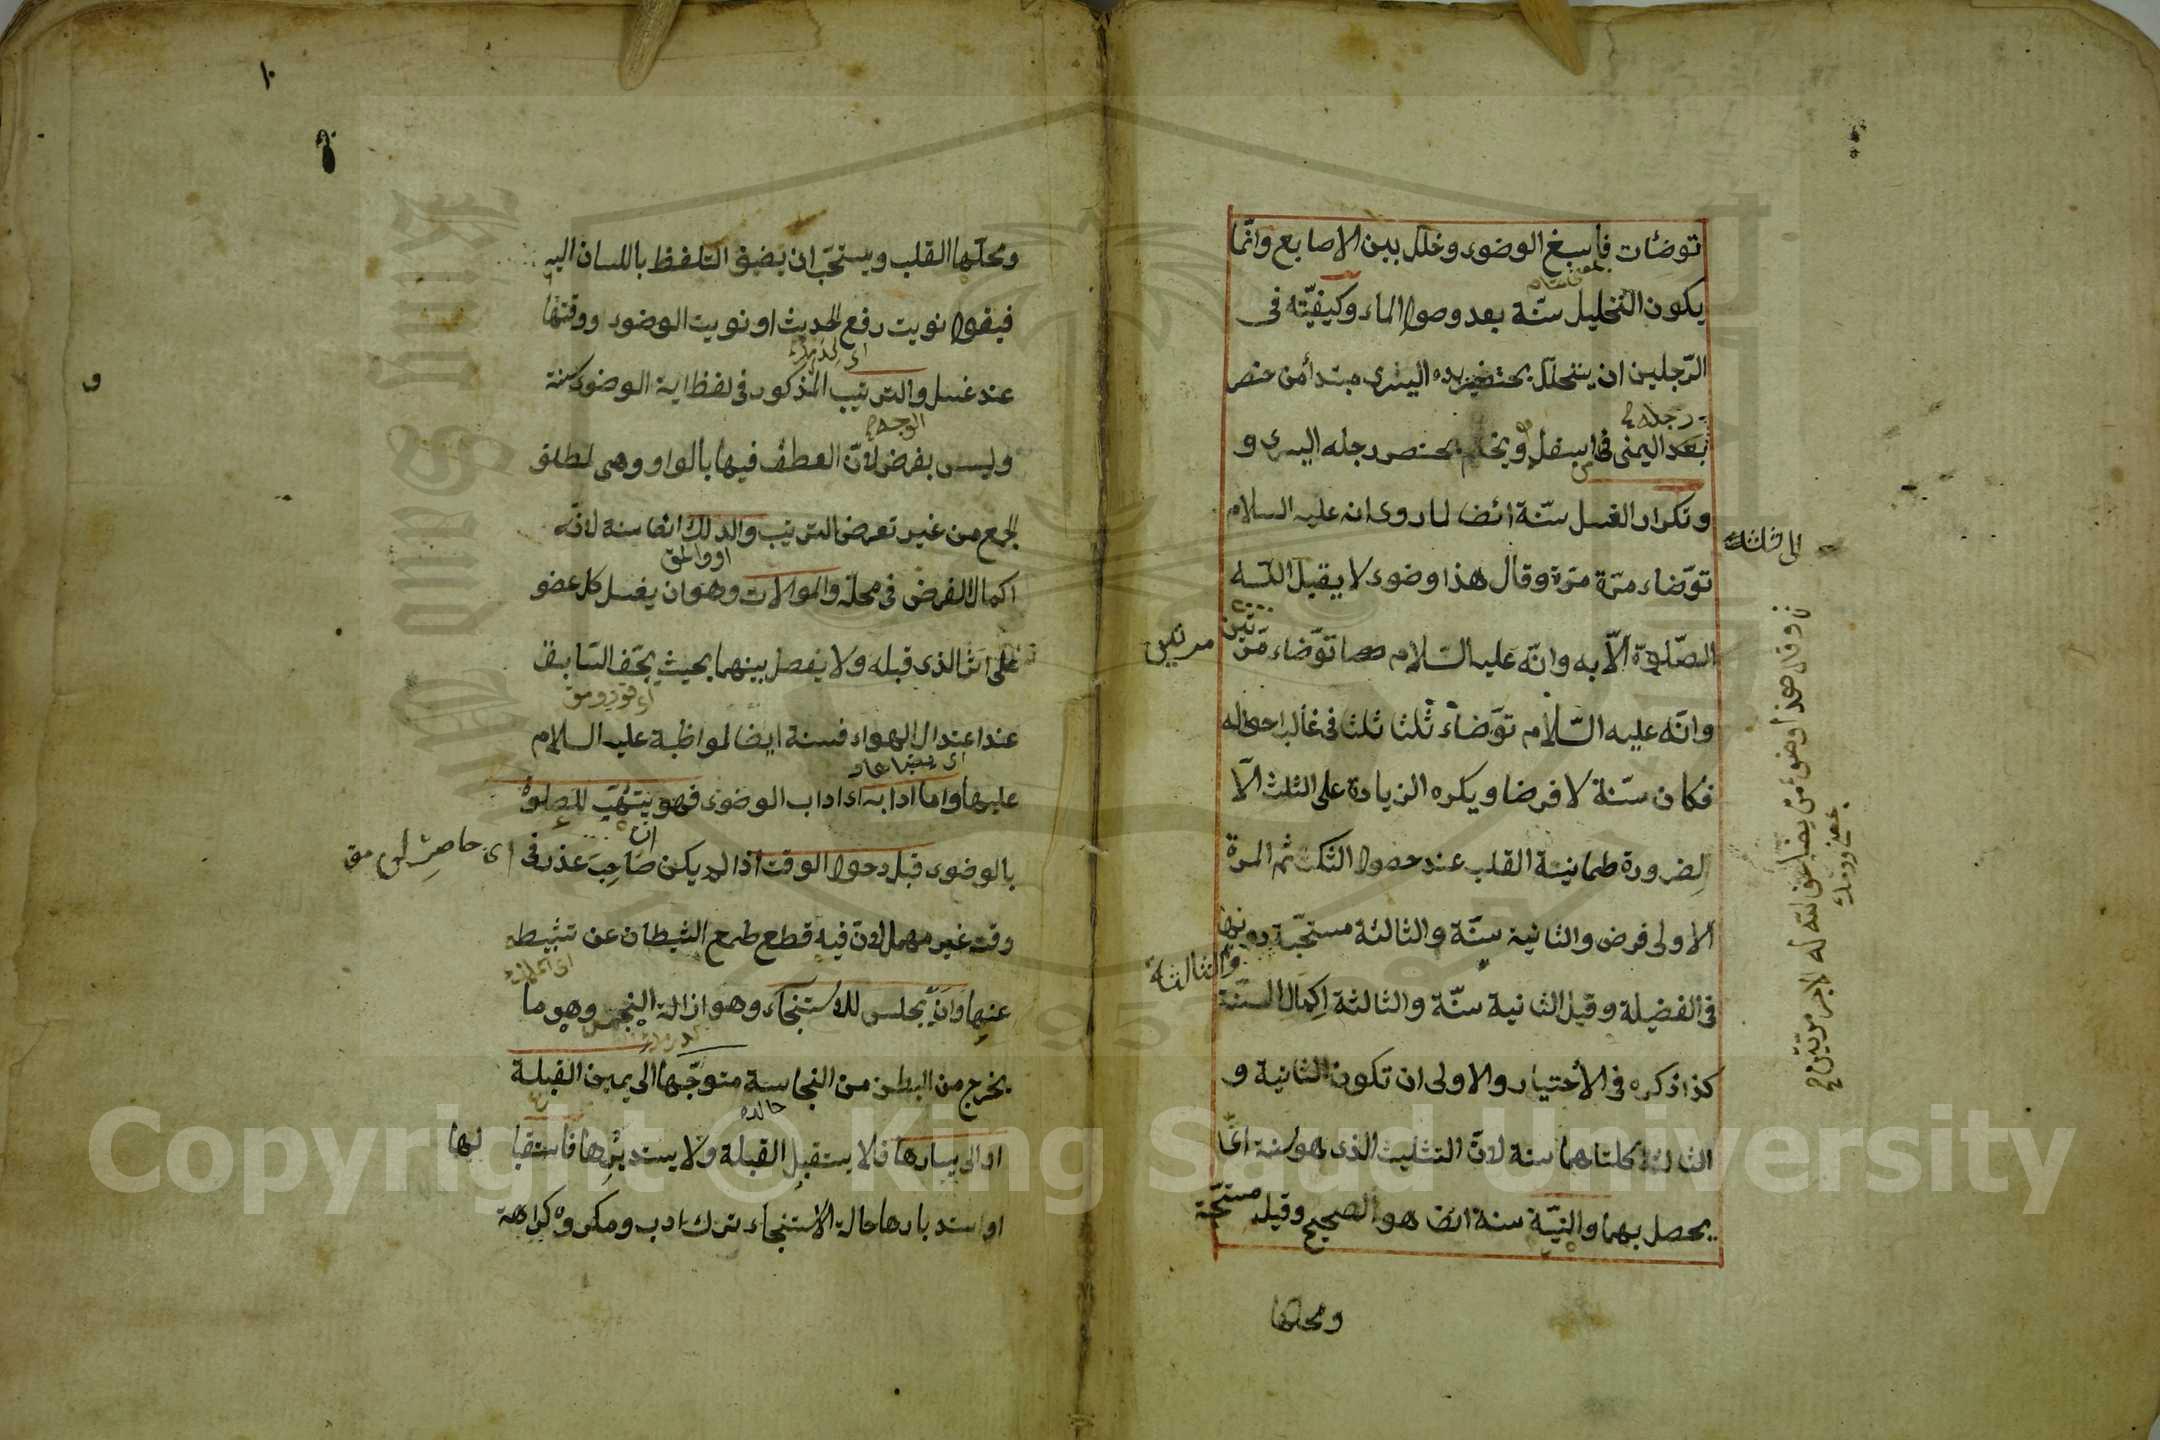 توضأت فاسبغ الوضوء وخلل بين الاصابع وانّما
يكون التخليل سنّة بعد وصول الماء وكيفيّته فى
الرّجلين ان يتخلّل بخنصر يده اليسرى مبتدأ من خنصر
رجله
اليمنى فى اسفل ويختم بخنصر رجله اليسرى و
وتكرار الغسل سنّة ائضا لما روى انه عليه السلام
الى ثلثة
توّضاء مرّة مرّة وقال هذا وضوء لا يقبل اللّه
الصّلوة الّا به وانّه عليه السّلام توّضاء مرّتين
مرتين
وقال هذا وضوء من يضاعف الله له الاجر مرّتين
وانّه عليه السّلام توّضاء ثلثا ثلثا فى غالب احواله
فكان سنّة لا فرضا ويكره الزيادة على الثلث الّا
لضرورة طمانينة القلب عند حصول الشّك ثم المرة
الاولى فرض والثانية سنّة والثالثة مستحبّة دونها
فى الفضيلة وقيل الثانية سنّة والثالثة اكمال السنّة
والثالثة
كذا ذكره فى الأختيار والاولى ان تكون الثانية و
الثالثة كلتاهما سنة لانّ التثليث الذى هو سنة انّما
يحصل بهما والنيّة سنة ائضا هو الصحيح وقيل مستحبّة
ومحلها
١٠
ومحلّها القلب ويستحبّ ان يضيف التلفظ باللسان اليه
فيقول نويت رفع الحديث او نويت الوضوء ووقتها
عند غسل والترتيب المذكور فى لفظ اية الوضوء سنة
الوجه
وليس بفرض لانّ العطف فيها بالواو وهى لمطلق
الجمع من غير تعرض الترتيب والدلك ائضا سنة لانّه
اكمال الفرض فى محلّه والموالات وهو ان يغسل كل عضو
على اثر الذى قبله ولا يفصل بينهما بحيث يجّف السّابق
عند اعتدال الهواء فسنة ايضا لمواظبة عليه السلام
عليها واما ادابه اى اداب الوضوء فهو يتهّب للصلوة
ان
بالوضوء قبل دخول الوقت اذا لم يكن صاحب عذر فى
وقت غير مهمل لانّ فيه قطع طمع الشيطان عن تثبيطه
عنها وان يجلس للاستنجاء وهو ازالة النجس وهو ما
يخرج من البطن من النجاسة متوجّها الى يمين القبلة
او الى يسارها فلا يستقبل القبلة ولا يستدبرها فاستقبا لها
او استدبارها حالة الاستنجاء ترك ادب ومكروه كراهة